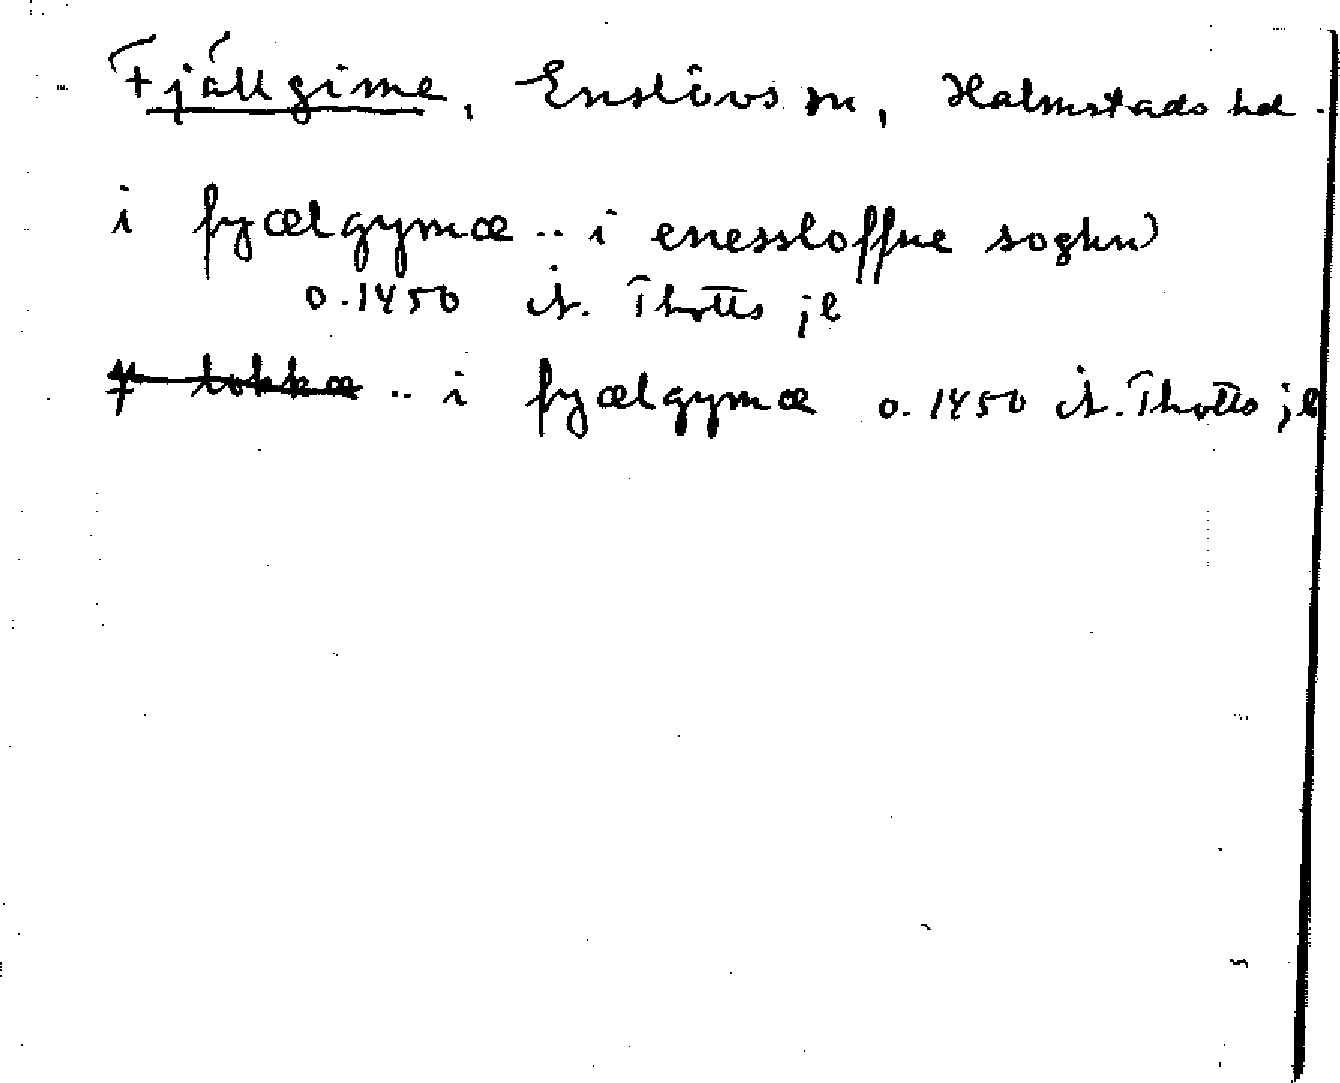 Fjällgime, Enslövs sn, Halmstads hd.
i fyælgymæ .. i enessloffne soghn
o. 1450 it. Thotts jb
.. i fyælgymæ o. 1450 it. Thotts jb